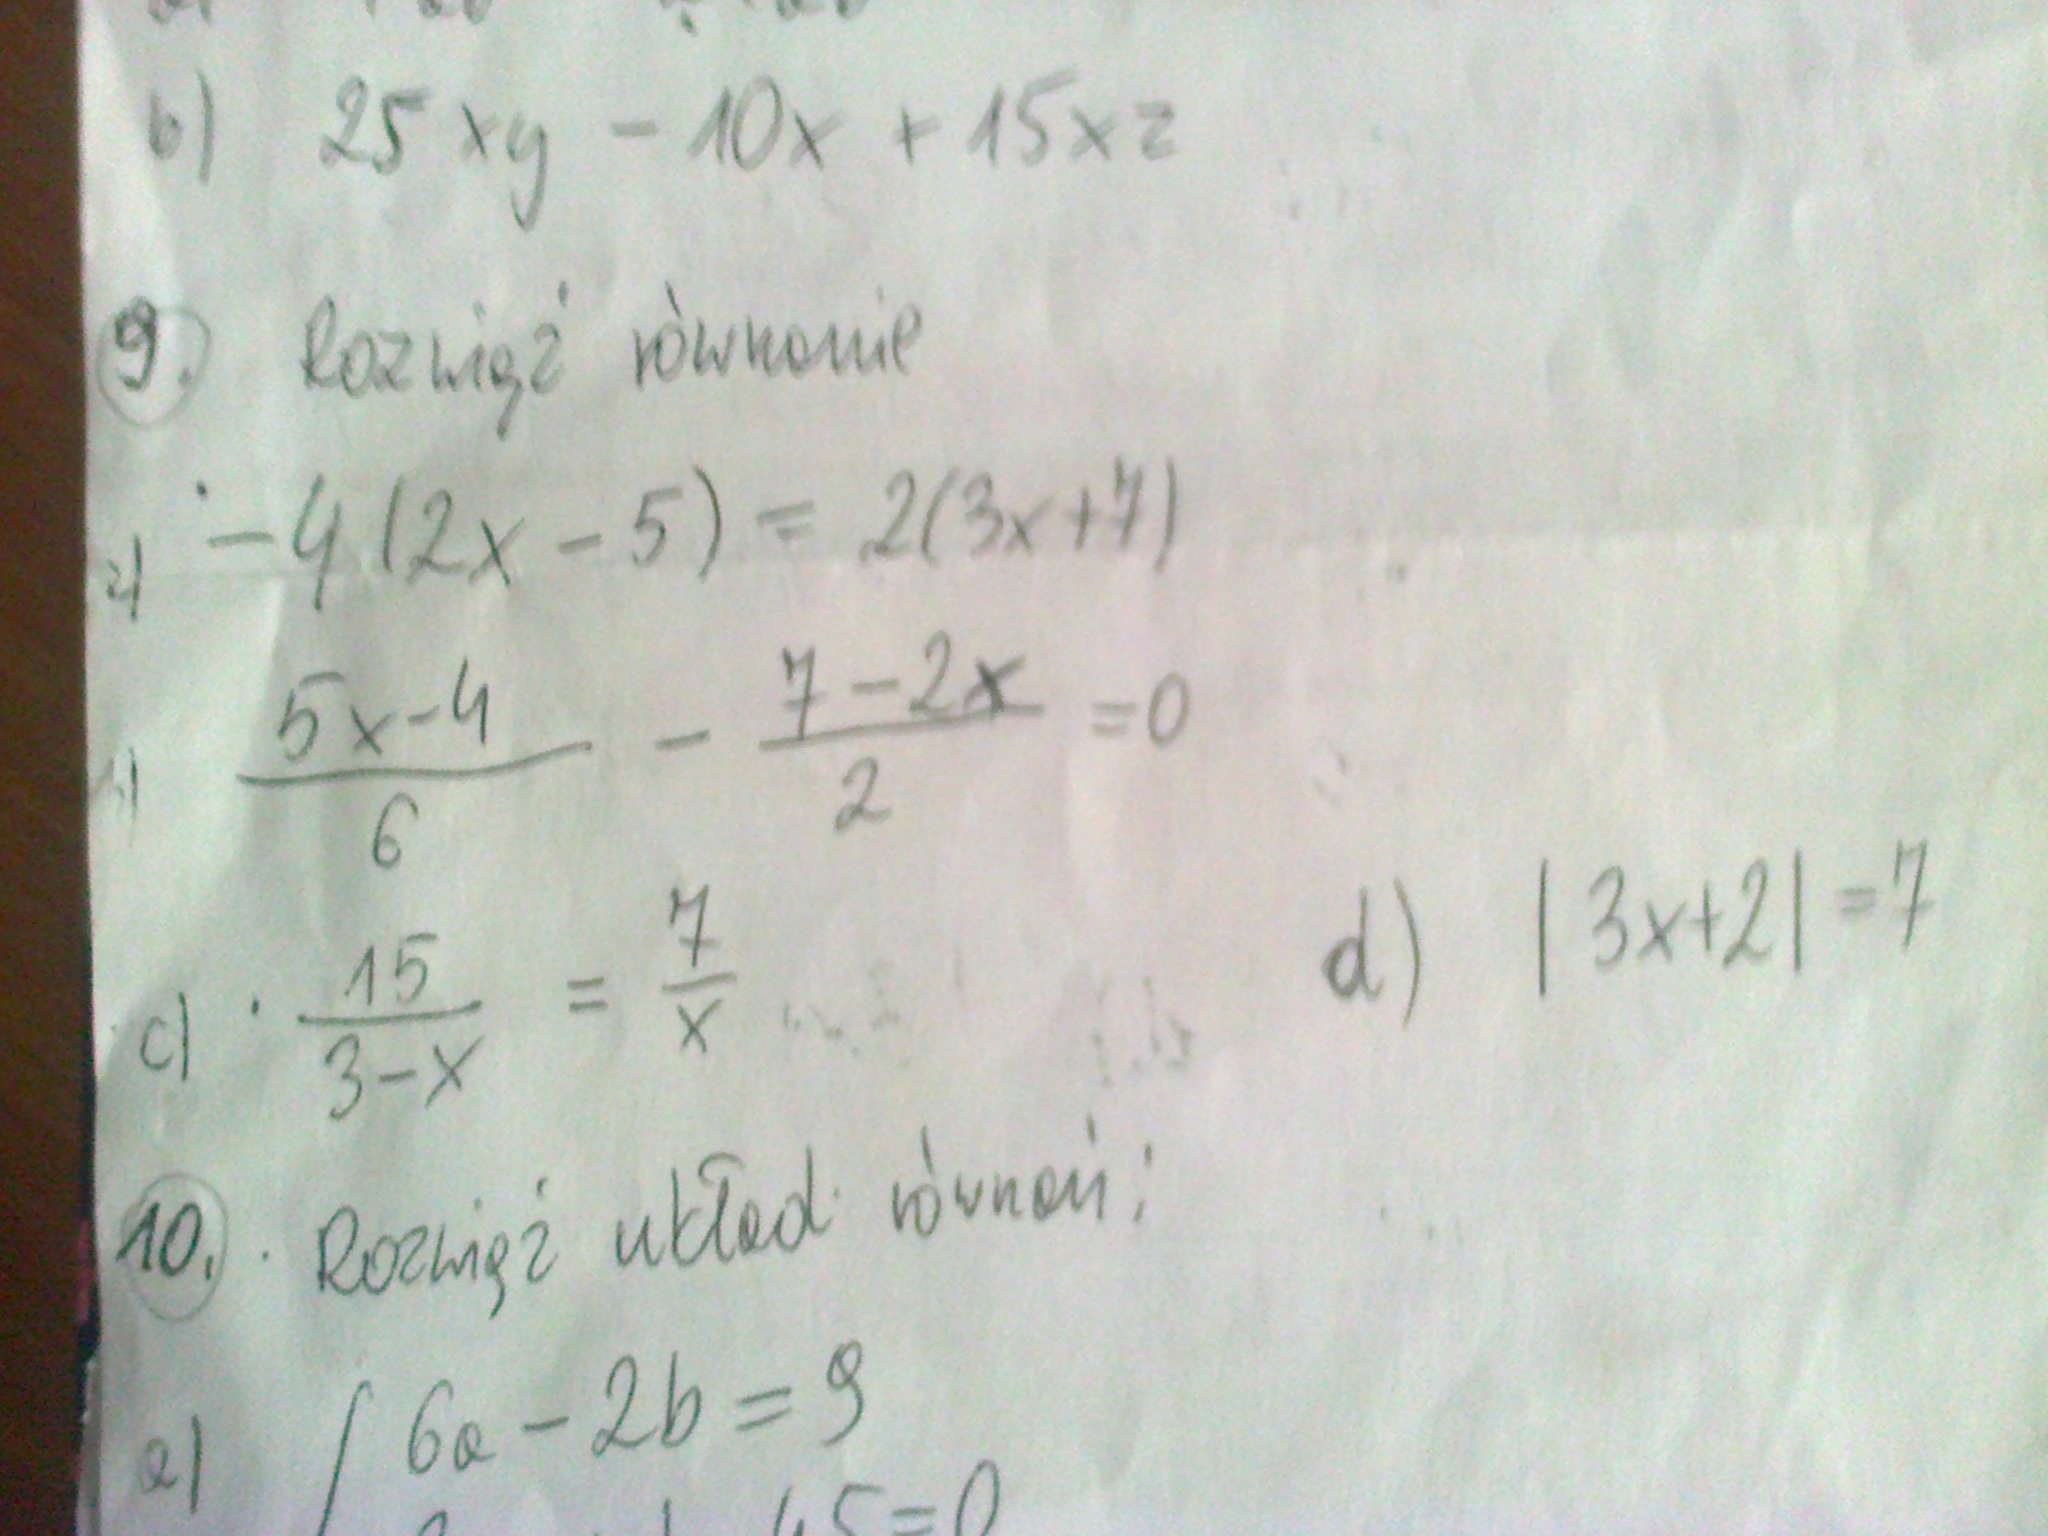 b) 25xy - 10x + 15xz
9. Rozwiąż równanie
a) -4(2x - 5) = 2(3x+7)
b) \frac{5x-4}{6} - \frac{7-2x}{2} = 0
c) \frac{15}{3-x} = \frac{7}{x}
d) |3x+2| = 7
10. Rozwiąż układ równań:
a) { 6a - 2b = 9
45 = 0